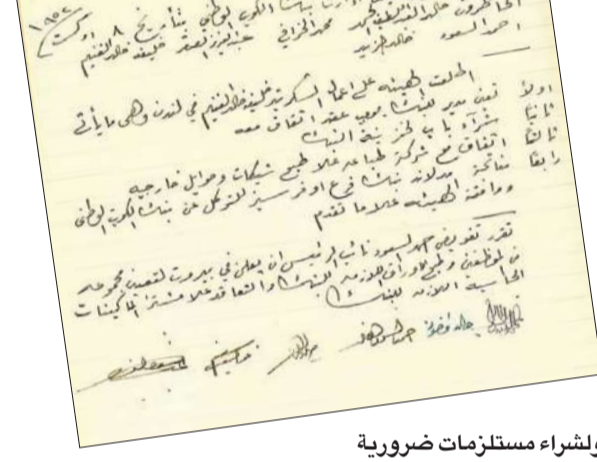 الحاضرون خالد الزيد الخالد محمد محمد الخرافي بنك الكويت الوطني بتاريخ ٨ اوكست ١٩٥٢
احمد السعود خالد عبدالعزيز الصقر خليفه خالد الغنيم
اطلعت الهيئه على اعمال السكرتير خليفه خالد الغنيم في لندن وهي ما يأتي
اولا تعين مدير للبنك بموجب عقد اتفاق معه
ثانيا شراء باب لخزينة البنك
ثالثا اتفاق مع شركة طباعه علا طبع شيكات وحوايل خارجيه
رابعا مفاتحة مدلاند بنك فرع اوفرسيز للتوكل عن بنك الكويت الوطني
ووافقة الهيئه علا ما تقدم
تقرر تفويض احمد السعود نائب الرئيس ان يعلن في بيروت لتعيين مجموعه
من الموظفين وطبع الاوراق اللازمه للبنك والتعاقد علا مشترا الماكينات
الحاسبه اللازمه للبنك
ولشراء مستلزمات ضرورية